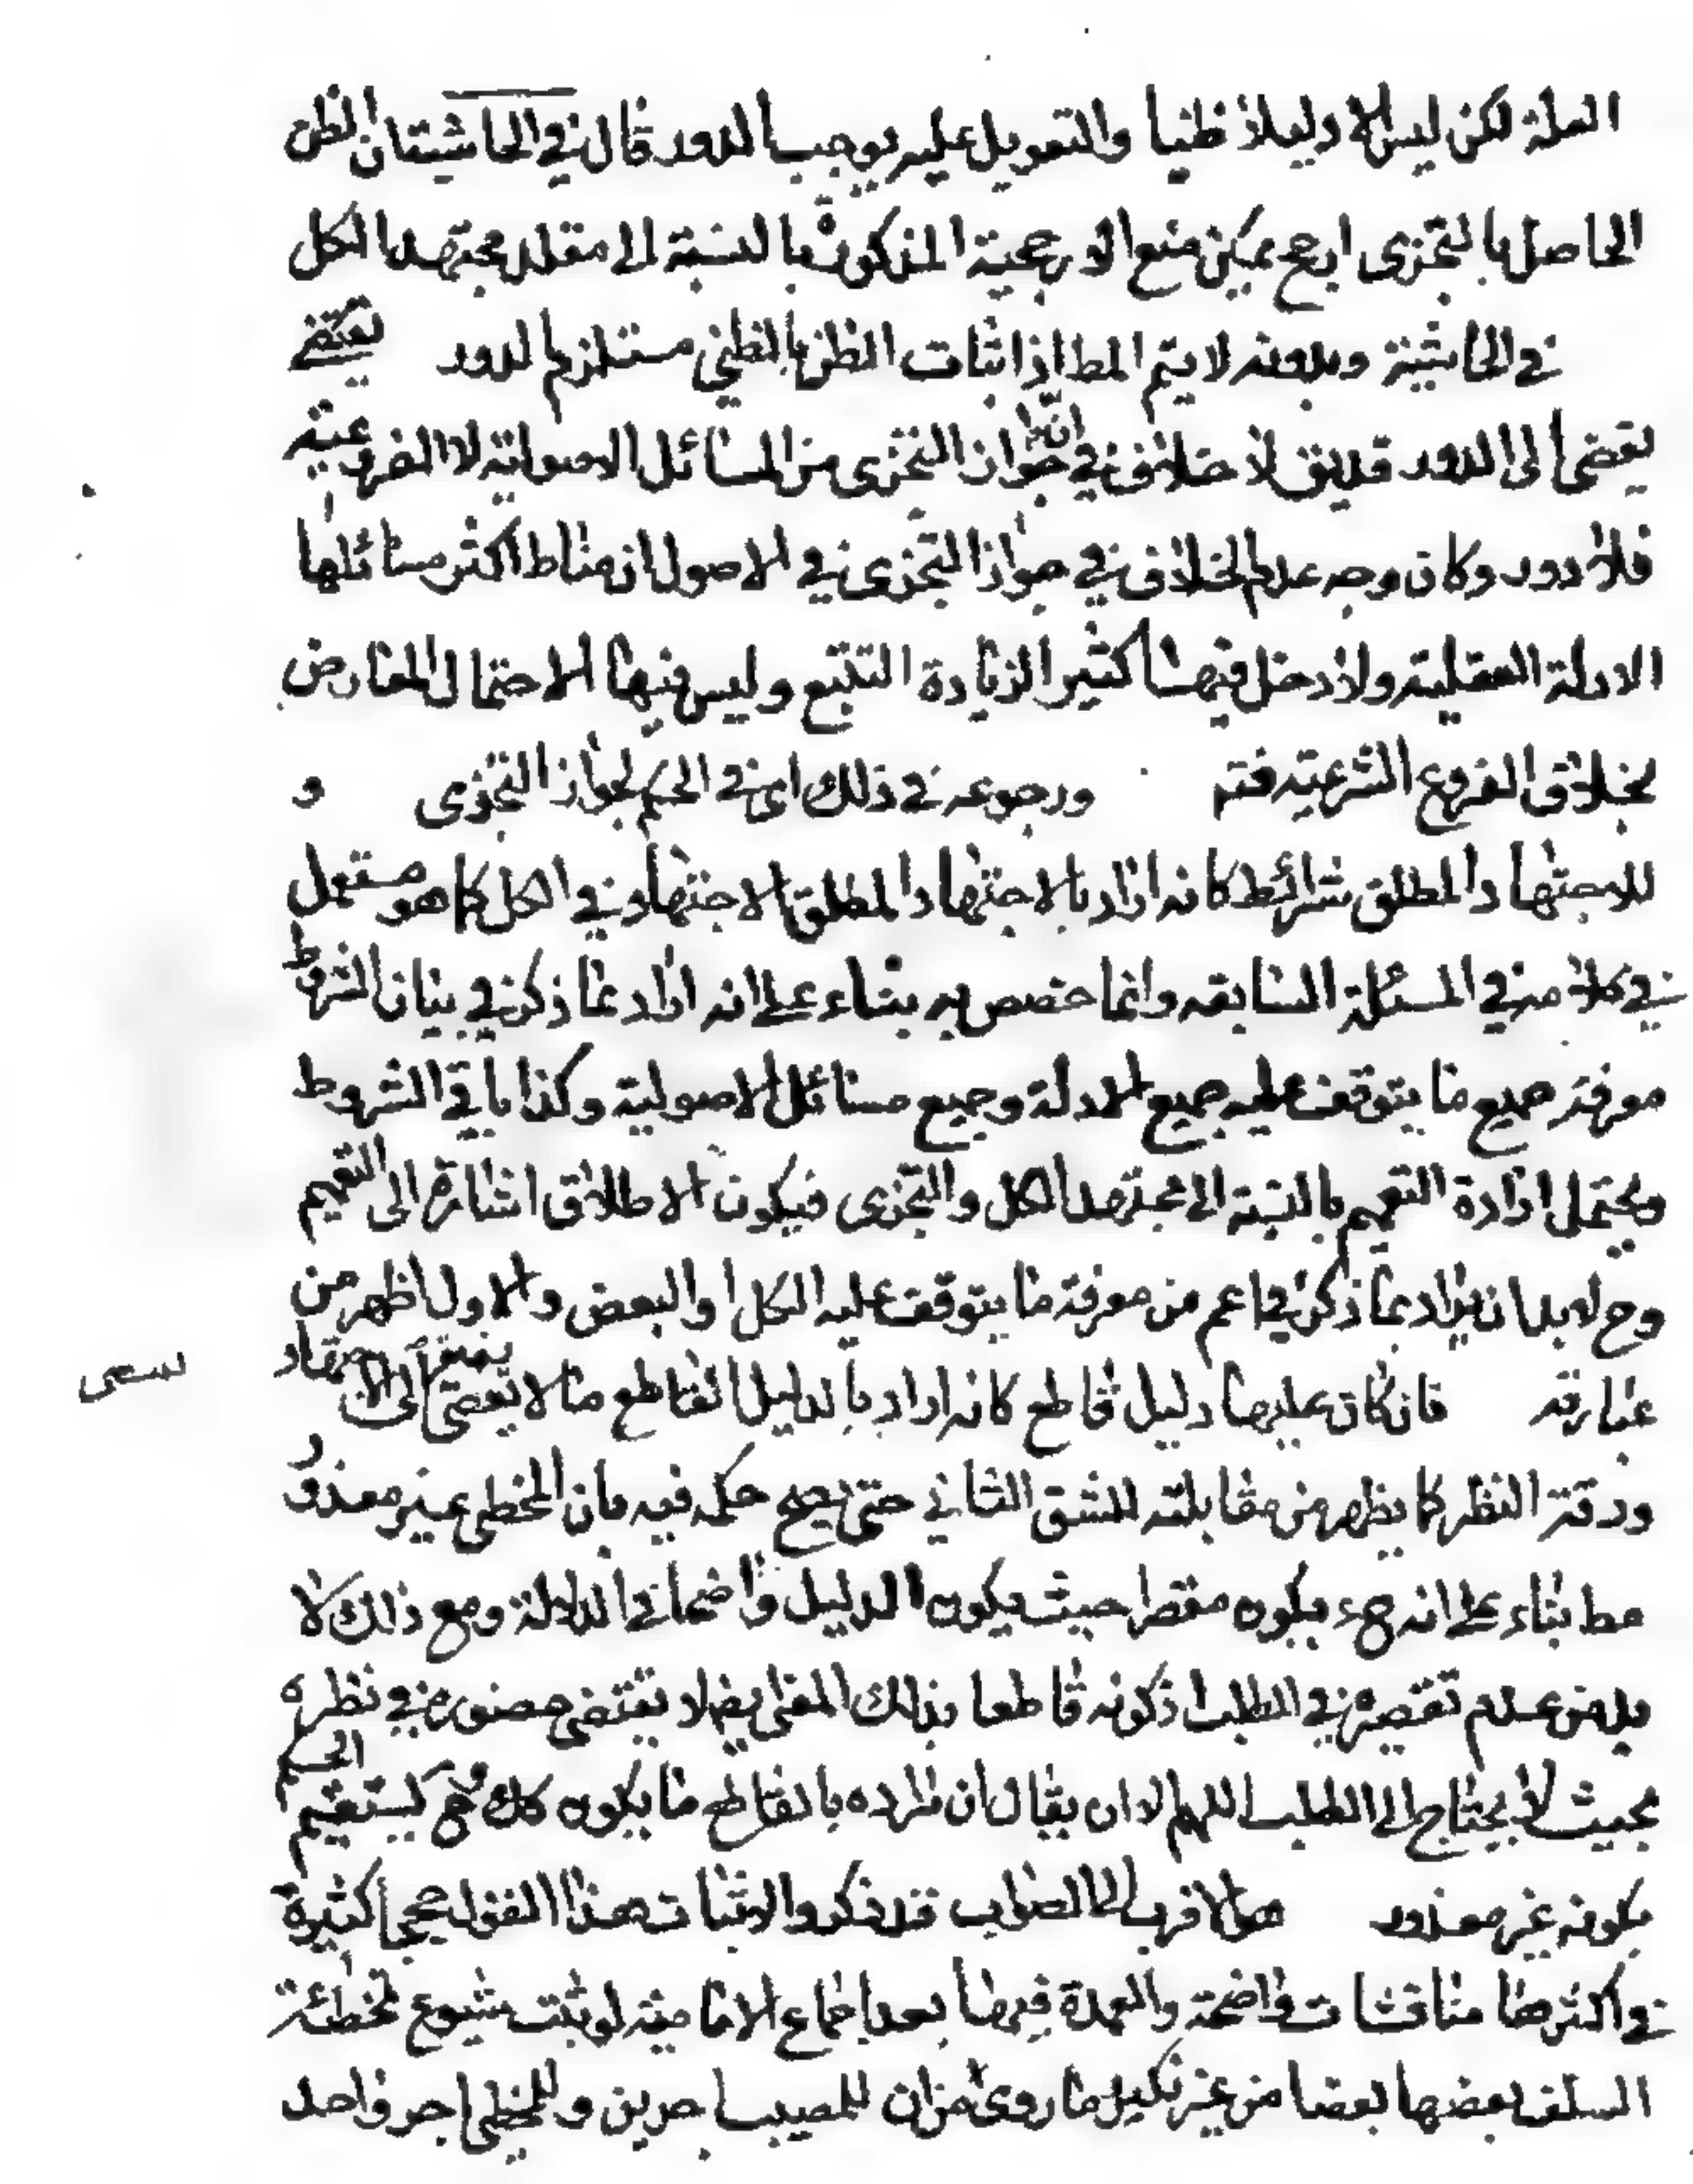 العلة لكن ليس الا دليلا ظنيا والتعويل عليه يوجب الدور قال في الحاشية ان الظن
الحاصل بالتجزى ارجح يمكن منع الارجحية المذكورة بالنسبة الى مقلد مجتهد الكل
في الحاشية وبدونه لا يتم المط اذ اثبات الظن بالظني مستلزم الدور
يفضى الى الدور قد يق لا خلاف في جواز التجزى من المسائل الاصولية لا الفروعية
فلا دور وكان وجه عدم الخلاف في جواز التجزى في الاصول ان مناط اكثر مسائلها
الادلة العقلية ولا دخل فيها كثيرا لزيادة التتبع وليس فيها الاحتمال المعارض
بخلاف الفروع الشرعية فتم ورجوعه في ذلك اى في الحكم بجواز التجزى و
للاجتهاد المطلق شرائط كانه اراد بالاجتهاد المطلق الاجتهاد في الكل كما هو مستعمل
في كلامه في المسئلة السابقه وانما خصص به بناء على انه اراد بما ذكر في بيان الشروط
معرفة جميع ما يتوقف عليه جميع الادلة وجميع مسائل الاصولية وكذا باقي الشروط
ويحتمل ارادة التعميم بالنسبة الى مجتهد الكل والتجزى فيكون الاطلاق اشارة الى التعميم
وح لا بد ان يراد بما ذكر في اعم من معرفة ما يتوقف عليه الكل او البعض والاول اظهر من
عبارته فان كان عليها دليل قاطع كانه اراد بالدليل القاطع ما لا يفضى الى الاجتهاد
ودقة النظر كما يظهر من مقابلته للشق الثاني حتى يصح حكمه فيه بان المخطى غير معذور
مط بناء على انه ح يكون مقصرا حيث يكون الدليل واضحا في الدلالة ومع ذلك لا
بد من عدم تقصيره في الطلب اذ كونه قاطعا بذلك المعنى ايضا لا يقتضى حضوره في نظره
بحيث لا يحتاج الى الطلب اللهم الا ان يقال ان مراده بالقاطع ما يكون كك فح يستقيم الحكم
بكونه غير معذور هو الاقرب الى الصواب قد ذكروا لاثبات هذا القول حججا كثيرة
في اكثرها مناقشات واضحة والعمدة فيها بعد اجماع الامامية لو ثبت شيوع تخطئة
السلف بعضها بعضا من غير نكير ما روى من ان للمصيب اجرين وللمخطى اجر واحد